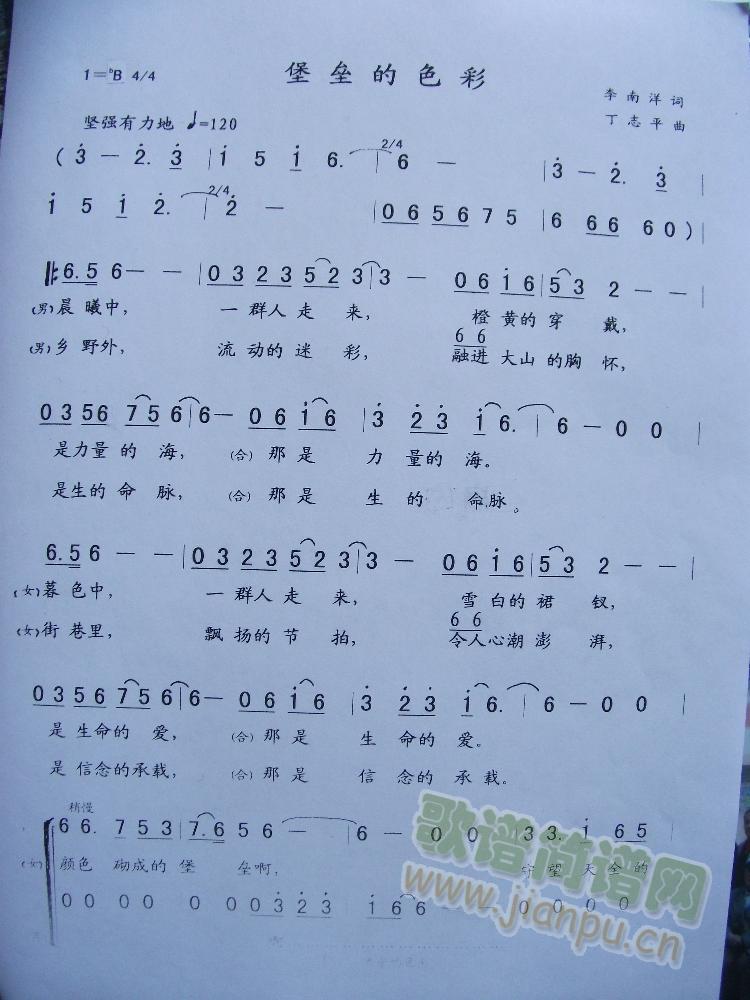 堡垒的色彩
1=ᵇB 4/4
李南洋 词
丁志平 曲
坚强有力地 ♩=120
2/4
(3 — 2. 3 | 1 5 1 6. | 6 — | 3 — 2. 3 |
2/4
1 5 1 2. | 2 — | 0 6 5 6 7 5 | 6 6 6 6 0 ) |
6. 5 6 — — | 0 3 2 3 5 2 3 | 3 — | 0 6 1 6 | 5 3 2 — — |
(男)晨曦中, 一群人走来, 橙黄的穿戴,
6 6
(男)乡野外, 流动的迷彩, 融进大山的胸怀,
0 3 5 6 7 5 6 | 6 — 0 6 1 6 | 3 2 3 1 6. | 6 — 0 0 |
是力量的海, (合)那是力量的海。
是生的命脉, (合)那是生的命脉。
6. 5 6 — — | 0 3 2 3 5 2 3 | 3 — | 0 6 1 6 | 5 3 2 — — |
(女)暮色中, 一群人走来, 雪白的裙钗,
6 6
(女)街巷里, 飘扬的节拍, 令人心潮澎湃,
0 3 5 6 7 5 6 | 6 — 0 6 1 6 | 3 2 3 1 6. | 6 — 0 0 |
是生命的爱, (合)那是生命的爱。
是信念的承载, (合)那是信念的承载。
稍慢
6 6. 7 5 3 | 7. 6 5 6 — | 6 — 0 0 | 3 3. 1 6 5 |
(女)颜色砌成的堡垒啊, 守望天全的
0 0 0 0 0 0 3 2 3 | 1 6 6 — 0 0 0 0 |
啊
歌谱简谱网
www.jianpu.cn